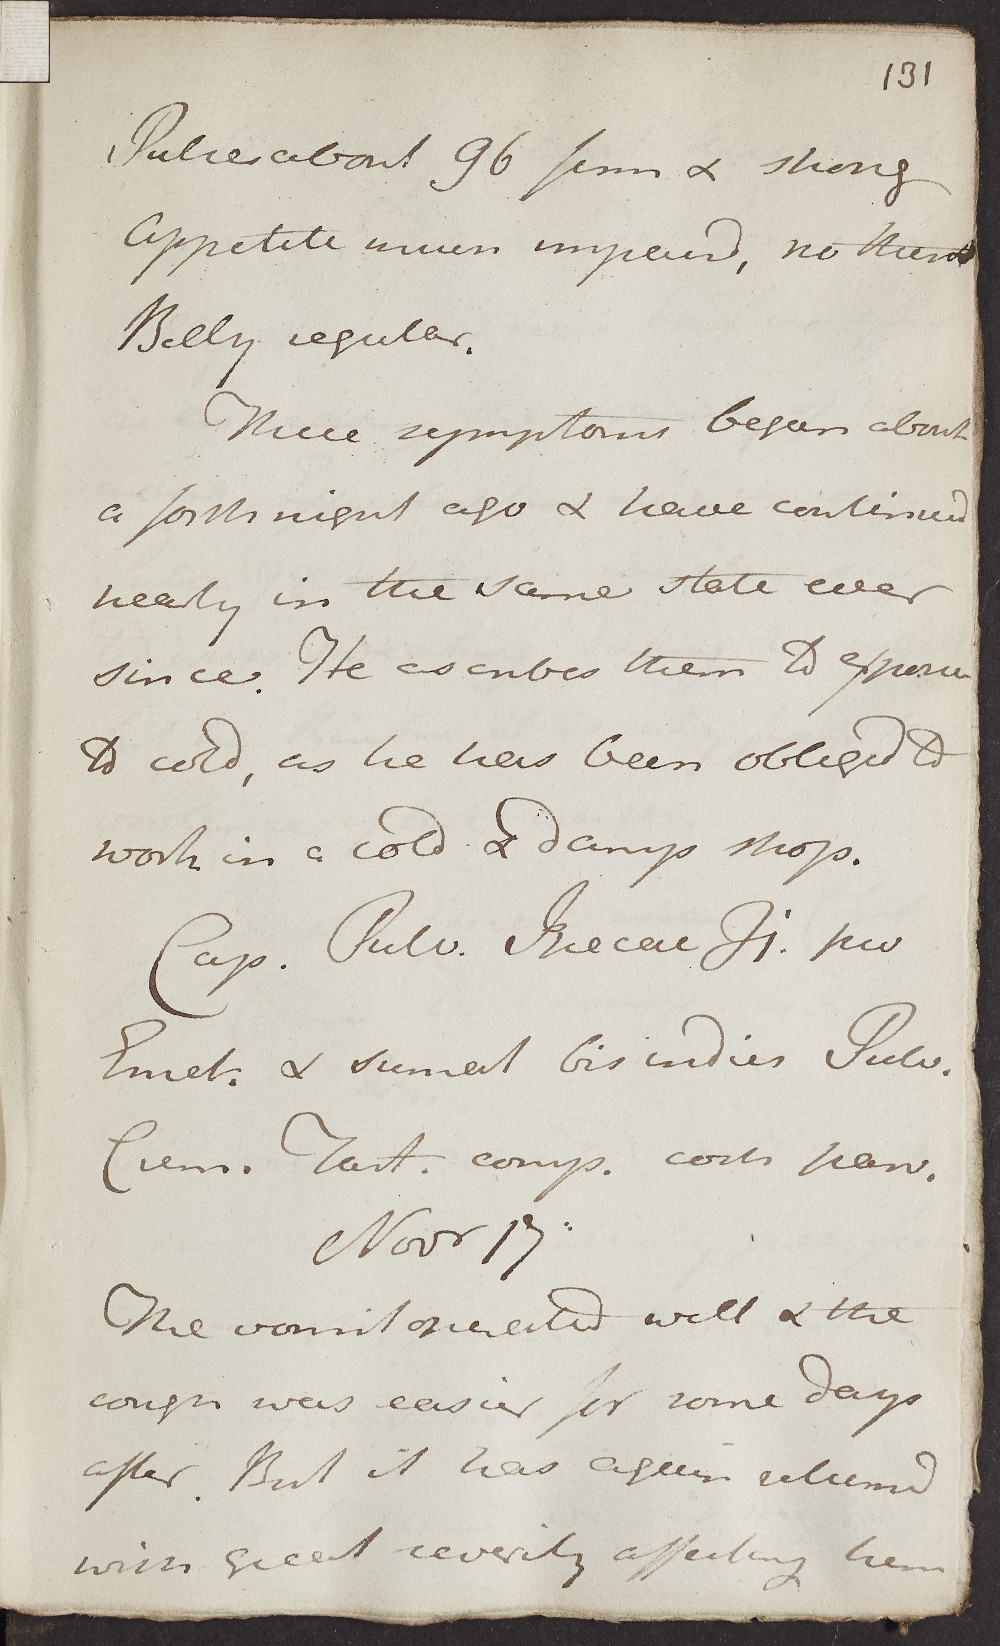 131
Pulse about 96 firm & strong
Appetite much impaird, no thirst
Belly regular.
These symptoms began about
a forthnight ago & have continued
nearly in the same state ever
since. He ascribes them to exposure
to cold, as he has been obliged to
work in a cold & damp shop.
Cap. Pulv. Ipecac ʒj. pro
Emet. & sumat bis indies Pulv.
Crem. Tart. comp. coch parv.
Novr 17.
The vomit operated well & the
cough was easier for some days
after. But it has again returnd
with great severity affecting him